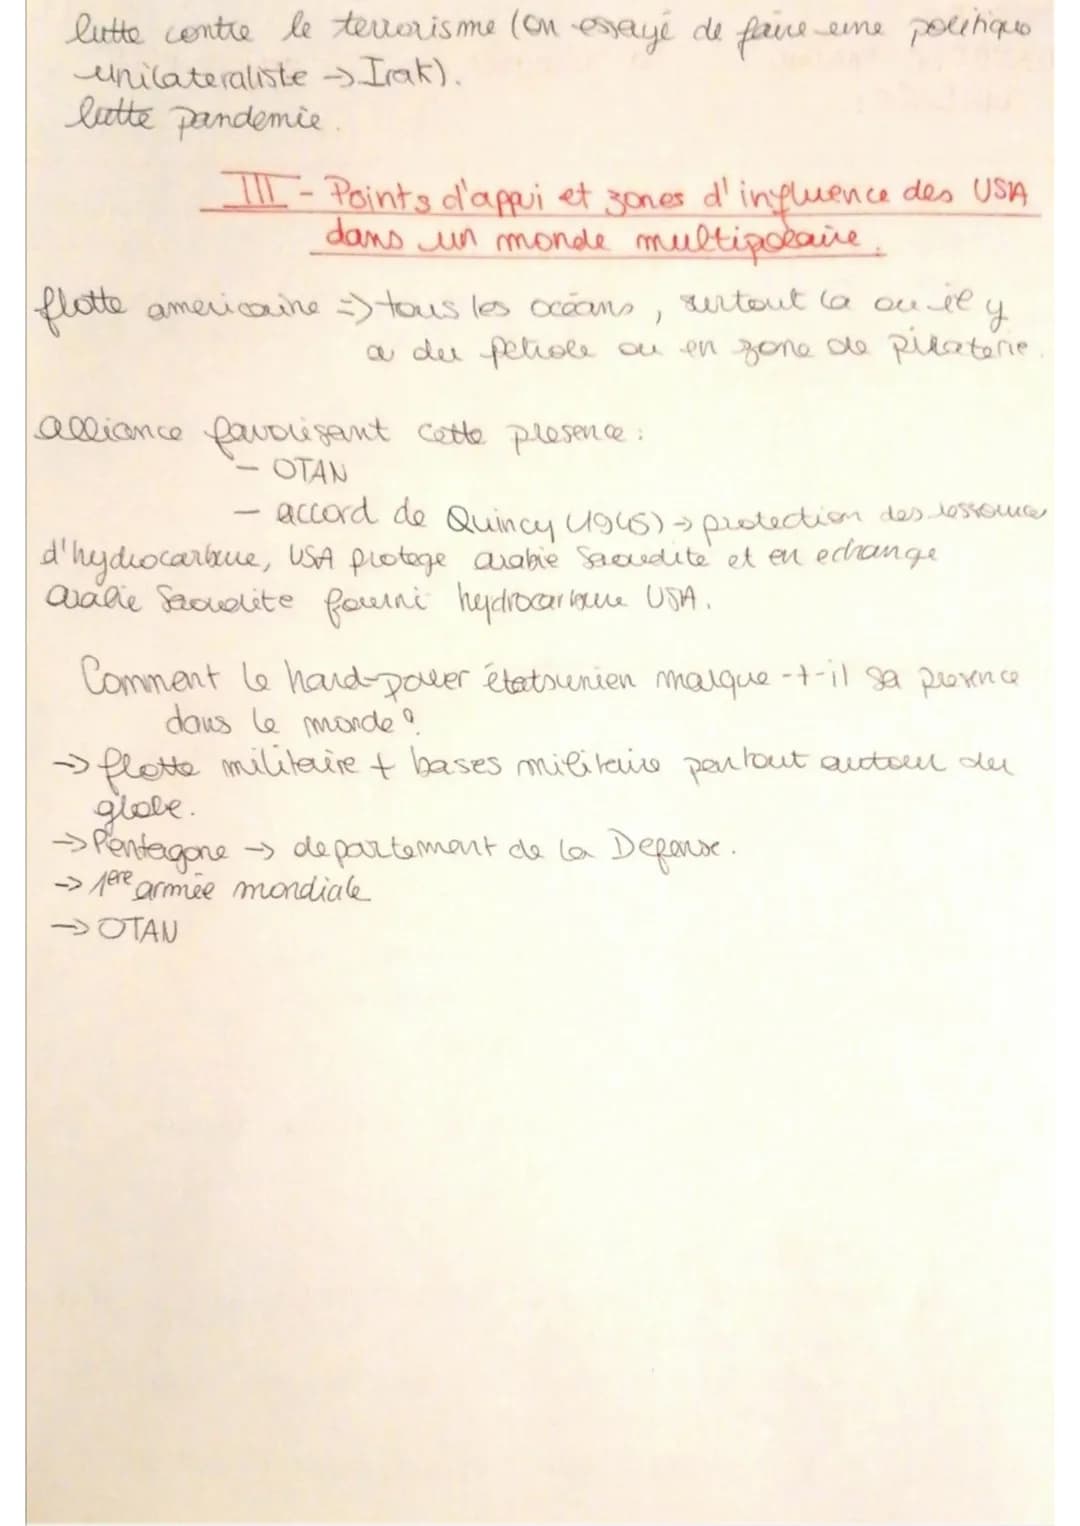 lutte contre le terrorisme (on essayé de faire une politique
unilateraliste -> Irak).
lutte pandemie.
III - Points d'appui et zones d'influence des USA
dans un monde multipolaire.
flotte americaine => tous les océans, surtout la ou il y
a du petrole ou en zone de piraterie.
alliance favorisant cette presence :
- OTAN
- accord de Quincy (1945) -> protection des ressource
d'hydrocarbure, USA protege arabie Saoudite et en echange
arabie Saoudite fourni hydrocarbure USA.
Comment le hard-power étatsunien marque-t-il sa presence
dans le monde ?
-> flotte militaire + bases militaire partout autour du
globe.
-> Pentagone -> departement de la Defense.
-> 1ere armée mondiale
-> OTAN